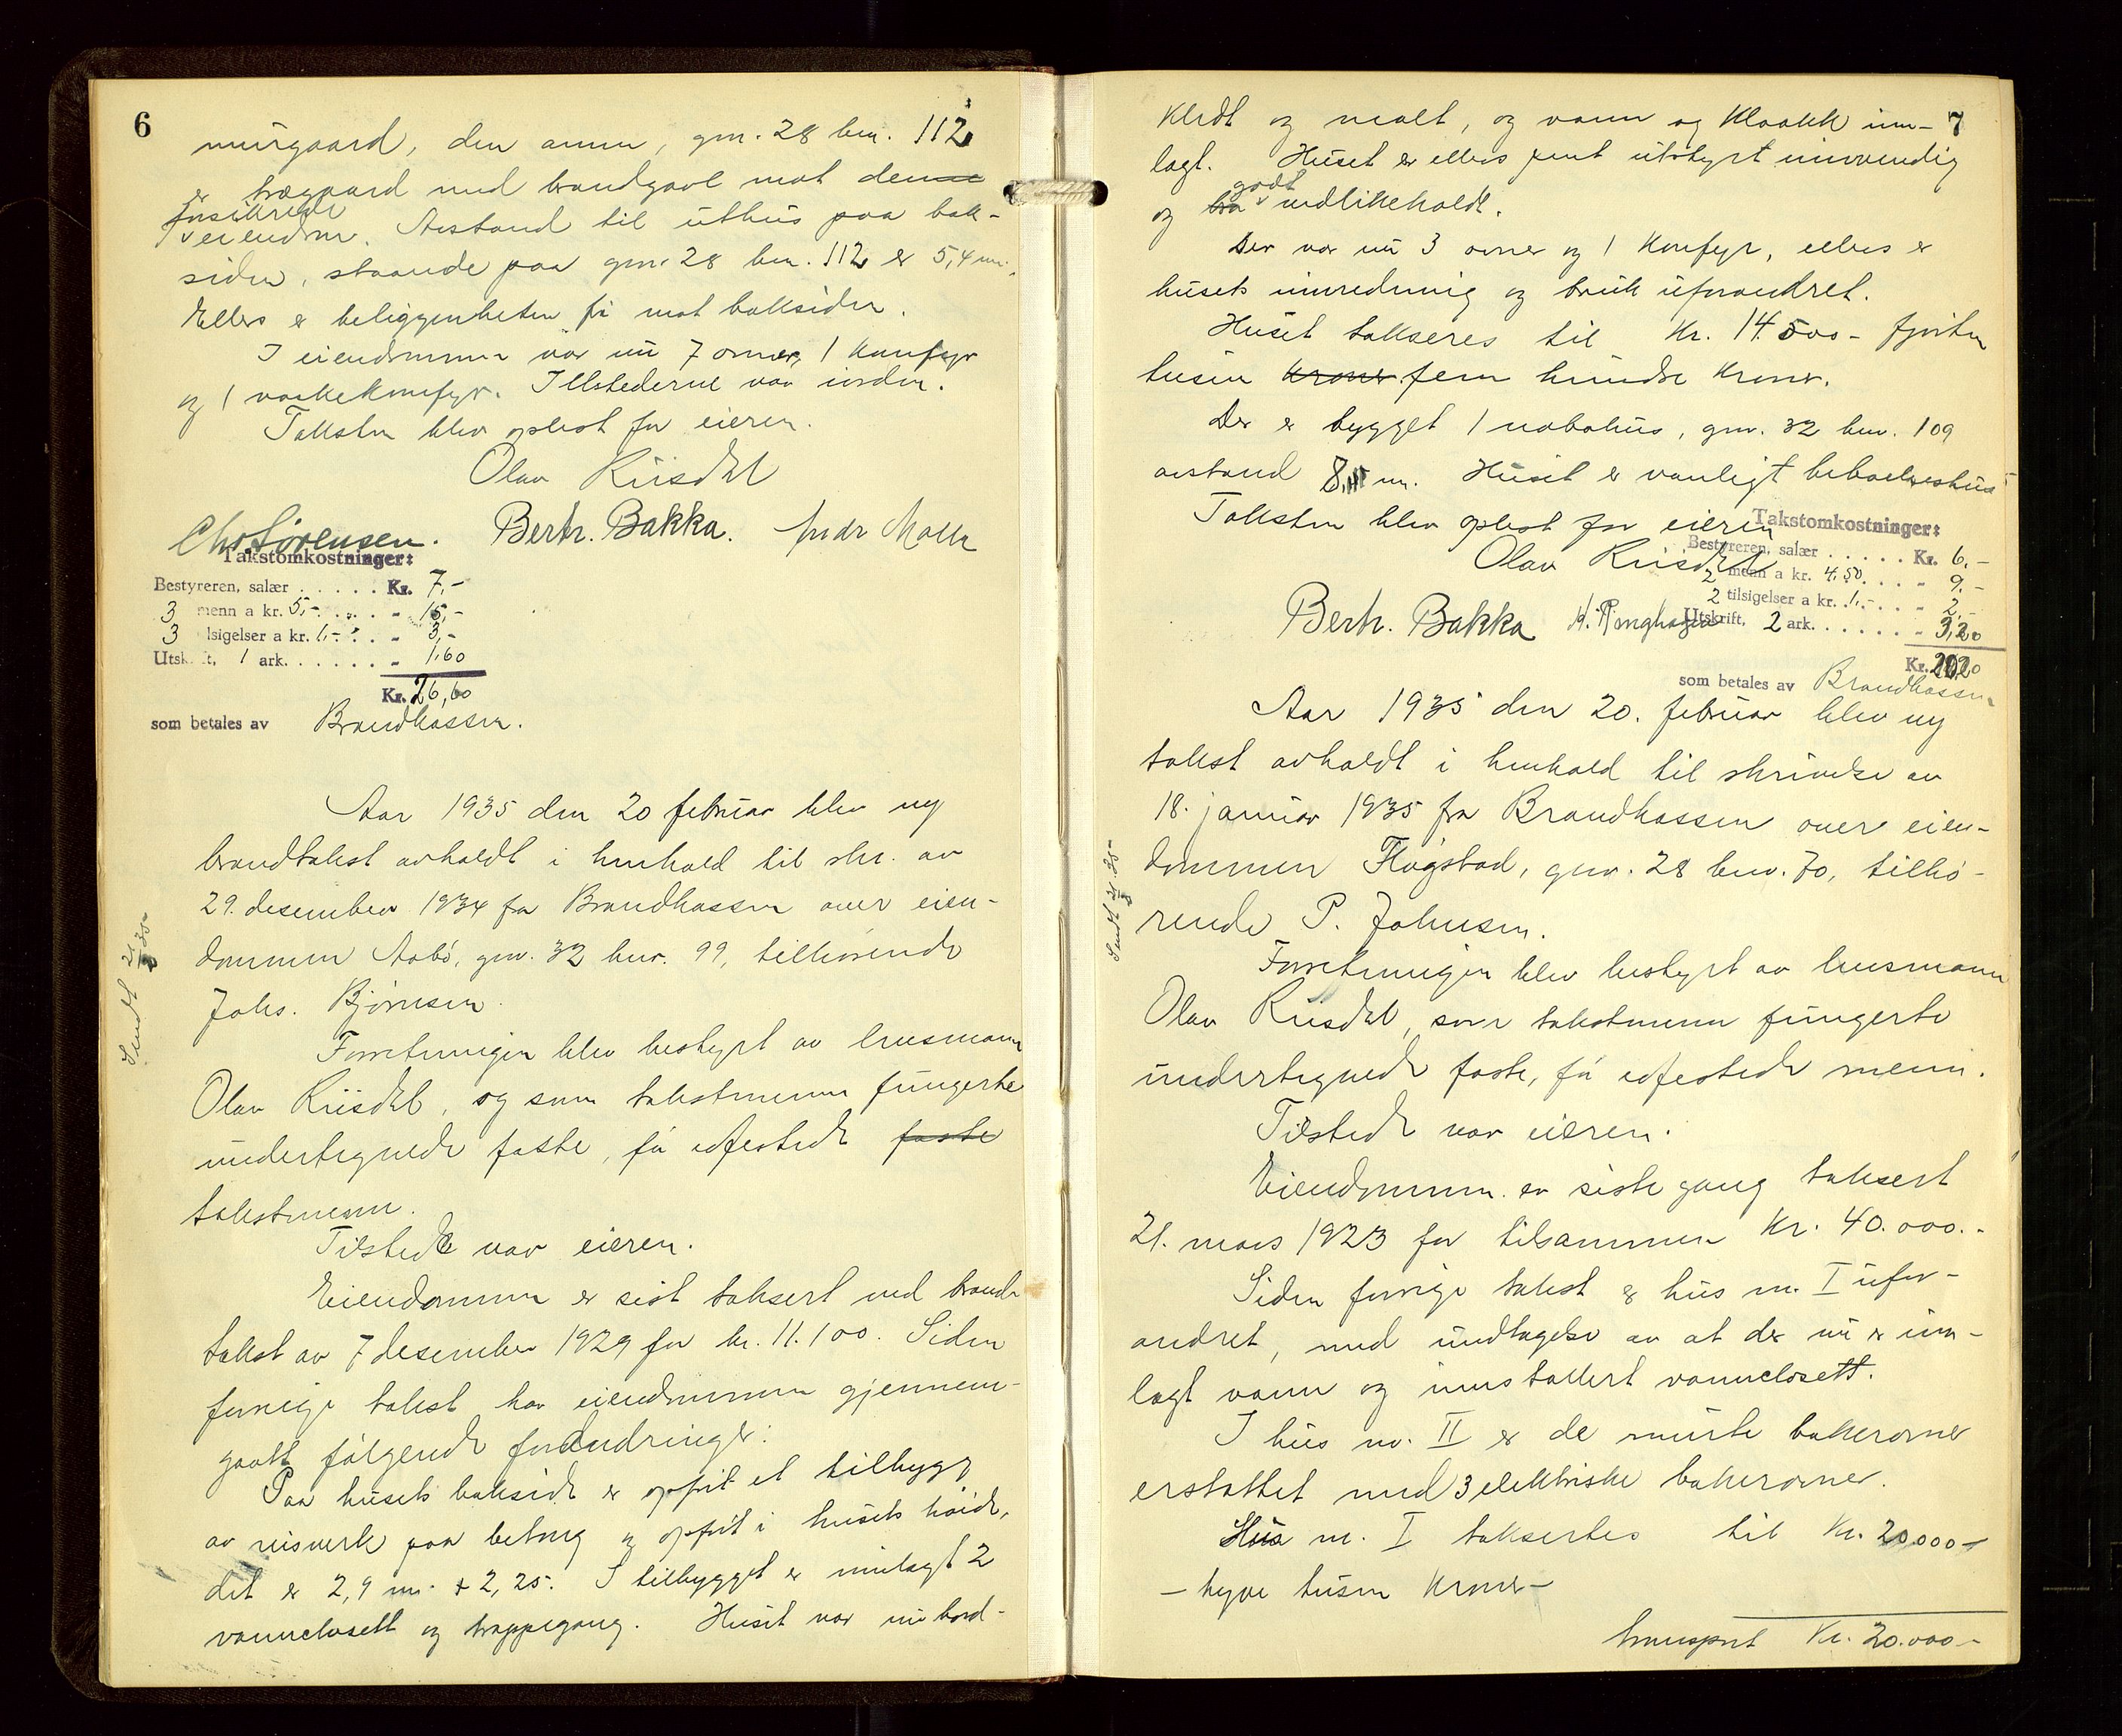 6
murgaard, den annen, gnr. 28 bnr. 112
er trægaard med brandgavl mot denne
forsikrede
eiendom. Avstand til uthus paa bak-
siden, staaende paa gnr. 28 bnr. 112 er 5,4 m.
Ellers er beliggenheten fri mot baksiden.
I eiendommen var nu 7 ovner, 1 komfyr
og 1 vaskekomfyr. Ildstederne var iorden.
Taksten blev oplest for eieren.
Olav Riisdal
Chr. Sørensen. Bertr. Bakka.
Takstomkostninger:
Bestyreren, salær ..... Kr. 7,-
3 menn a kr. 5,- .... " 15,-
3 tilsigelser a kr. 1,- ... " 3,-
Utskrift, 1 ark. ...... " 1,60
Kr. 26,60
som betales av Brandkassen.
Sendt 21/2 35
Aar 1935 den 20 februar blev ny
brandtakst avholdt i henhold til skr. av
29. desember 1934 fra Brandkassen over eien-
dommen Aabø, gnr. 32 bnr. 99, tilhørende
Johs. Bjørnsen.
Forretningen blev bestyrt av lensmann
Olav Riisdal, og som takstmenn fungerte
undertegnede faste, før edfestede faste
takstmenn.
Tilstede var eieren.
Eiendommen er sist taksert ved brand-
takst av 7 desember 1929 for kr. 11.100. Siden
forrige takst har eiendommen gjennem-
gaatt følgende forandringer:
Paa husets bakside er opført et tilbygg
av reisverk paa betong og opført i husets høide,
det er 2,9 m. x 2,25. I tilbygget er innlagt 2
vannclosett og trappegang. Huset var nu bord-
7
kledt og malt, og vann og kloakk inn-
lagt. Huset er ellers pent utstyrt innvendig
godt
og bra vedlikeholdt.
Der var nu 3 ovner og 1 komfyr, ellers er
husets innredning og bruk uforandret.
Huset takseres til Kr. 14.500- fjorten
tusen kroner fem hundre kroner.
Der er bygget 1 nabohus, gnr. 32 bnr. 109
avstand 8, m. Huset er vanligt beboelseshus
Taksten blev oplest for eieren
Olav Riisdal
Bertr. Bakka H. Ringhagen
Takstomkostninger:
Bestyreren, salær ..... Kr. 6,-
2 menn a kr. 4,50 .... " 9,-
2 tilsigelser a kr. 1,- .... " 2,-
Utskrift, 2 ark. ...... " 3,20
Kr. 20,20
som betales av Brandkassen
Sendt 21/2 35
Aar 1935 den 20. februar blev ny
takst avholdt i henhold til skrivelse av
18. januar 1935 fra Brandkassen over eien-
dommen Flagstad, gnr. 28 bnr. 70, tilhø-
rende P. Johnsen.
Forretningen blev bestyrt av lensmann
Olav Riisdal, som takstmenn fungerte
undertegnede faste, før edfestede menn.
Tilstede var eieren.
Eiendommen er siste gang taksert
21. mars 1923 for tilsammen Kr. 40.000.-
Siden forrige takst er hus nr. I ufor-
andret, med undtagelse av at der nu er inn-
lagt vann og innstallert vannclosett.
I hus nr. II er de murte bakerovner
erstattet med 3 elektriske bakerovner.
Hus nr. I taksertes til Kr. 20.000-
- tyve tusen kroner -
transport Kr. 20.000-